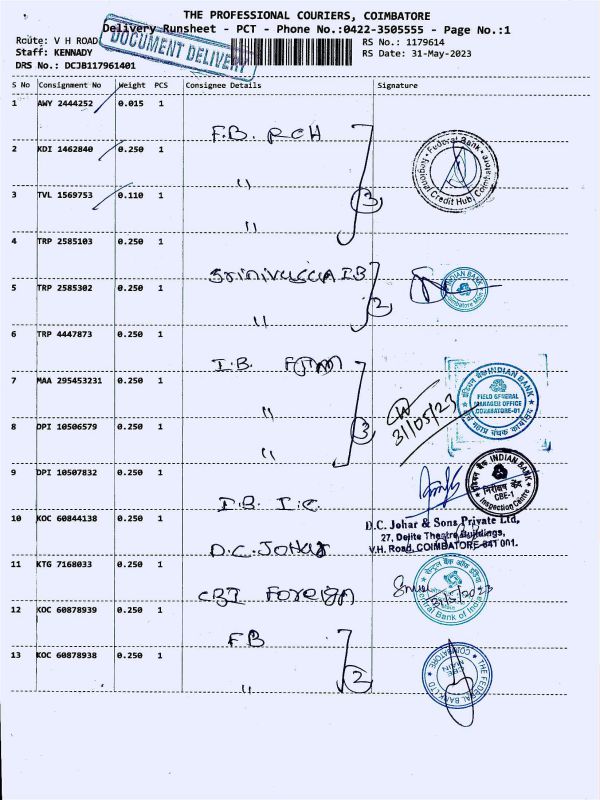 THE PROFESSIONAL COURIERS, COIMBATORE
Delivery Runsheet - PCT - Phone No.:0422-3505555 - Page No.:1
Route: V H ROAD
DOCUMENT DELIVERY
RS No.: 1179614
Staff: KENNADY
RS Date: 31-May-2023
DRS No.: DCJB117961401
S No Consignment No Weight PCS Consignee Details Signature
1 AWY 2444252 0.015 1
F.B. RCH
2 KDI 1462840 0.250 1
Federal Bank
Regional Credit Hub, Coimbatore
"
3 TVL 1569753 0.110 1
3
"
4 TRP 2585103 0.250 1
INDIAN BANK
5 TRP 2585302 0.250 1
2
"
6 TRP 4447873 0.250 1
I.B.
7 MAA 295453231 0.250 1
इंडियन बैंक INDIAN BANK
FIELD GENERAL
MANAGER OFFICE
COIMBATORE-01
"
31/05/23
8 DPI 10506579 0.250 1
3
"
9 DPI 10507832 0.250 1
इंडियन बैंक INDIAN BANK
निरीक्षण केंद्र
CBE-1
Inspection Centre
I.B. I.C.
10 KOC 60844138 0.250 1
D.C. Johar & Sons Private Ltd,
27, Delite Theatre Buildings,
V.H. Road, COIMBATORE-641 001.
D.C. JOHAR
11 KTG 7168033 0.250 1
सेन्ट्रल बैंक ऑफ इंडिया
Central Bank of India
31/5/2023
CBI Foreign
12 KOC 60878939 0.250 1
FB
13 KOC 60878938 0.250 1
2
THE FEDERAL BANK LTD
CBE
MAIN
COIMBATORE
"